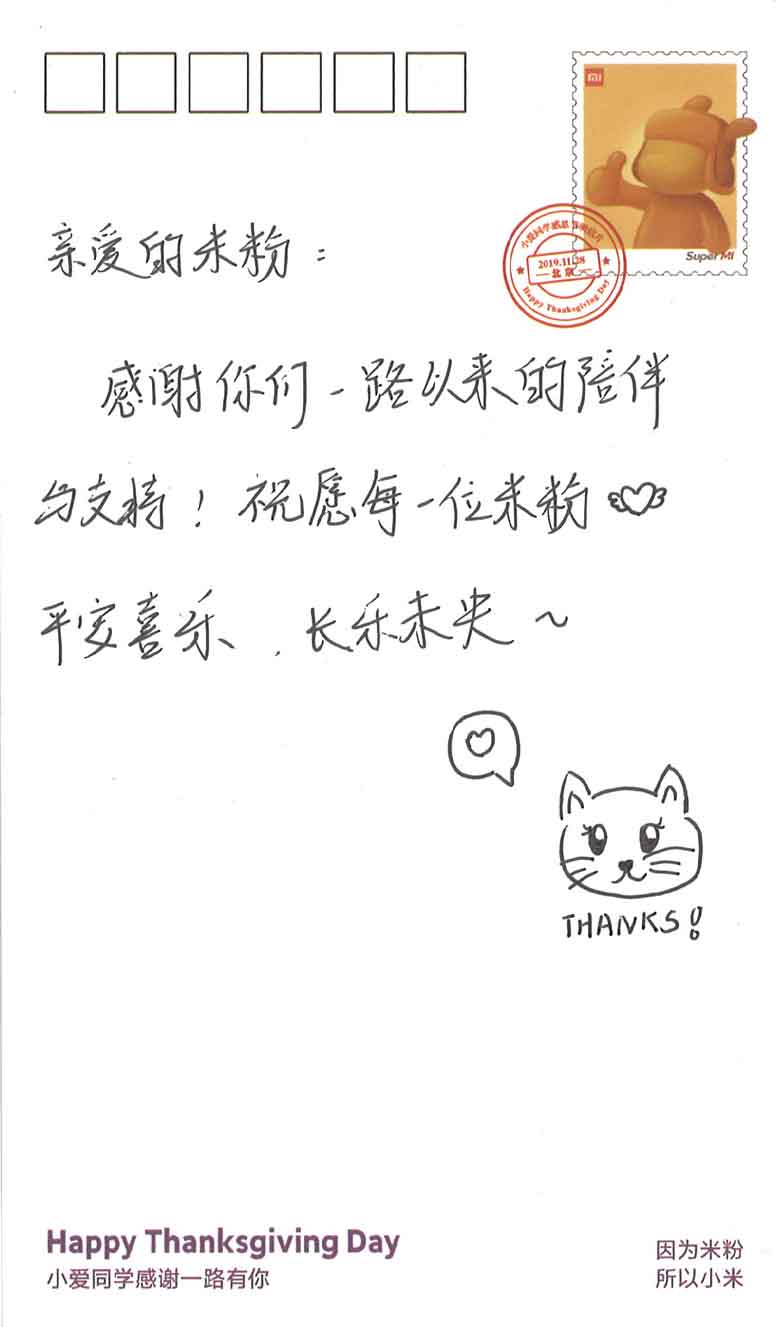 MI
Super MI
小爱同学感恩节明信片
2019.11.28
北京
Happy Thanksgiving Day
亲爱的米粉：
感谢你们一路以来的陪伴
与支持！祝愿每一位米粉
平安喜乐，长乐未央～
THANKS!
Happy Thanksgiving Day
小爱同学感谢一路有你
因为米粉
所以小米